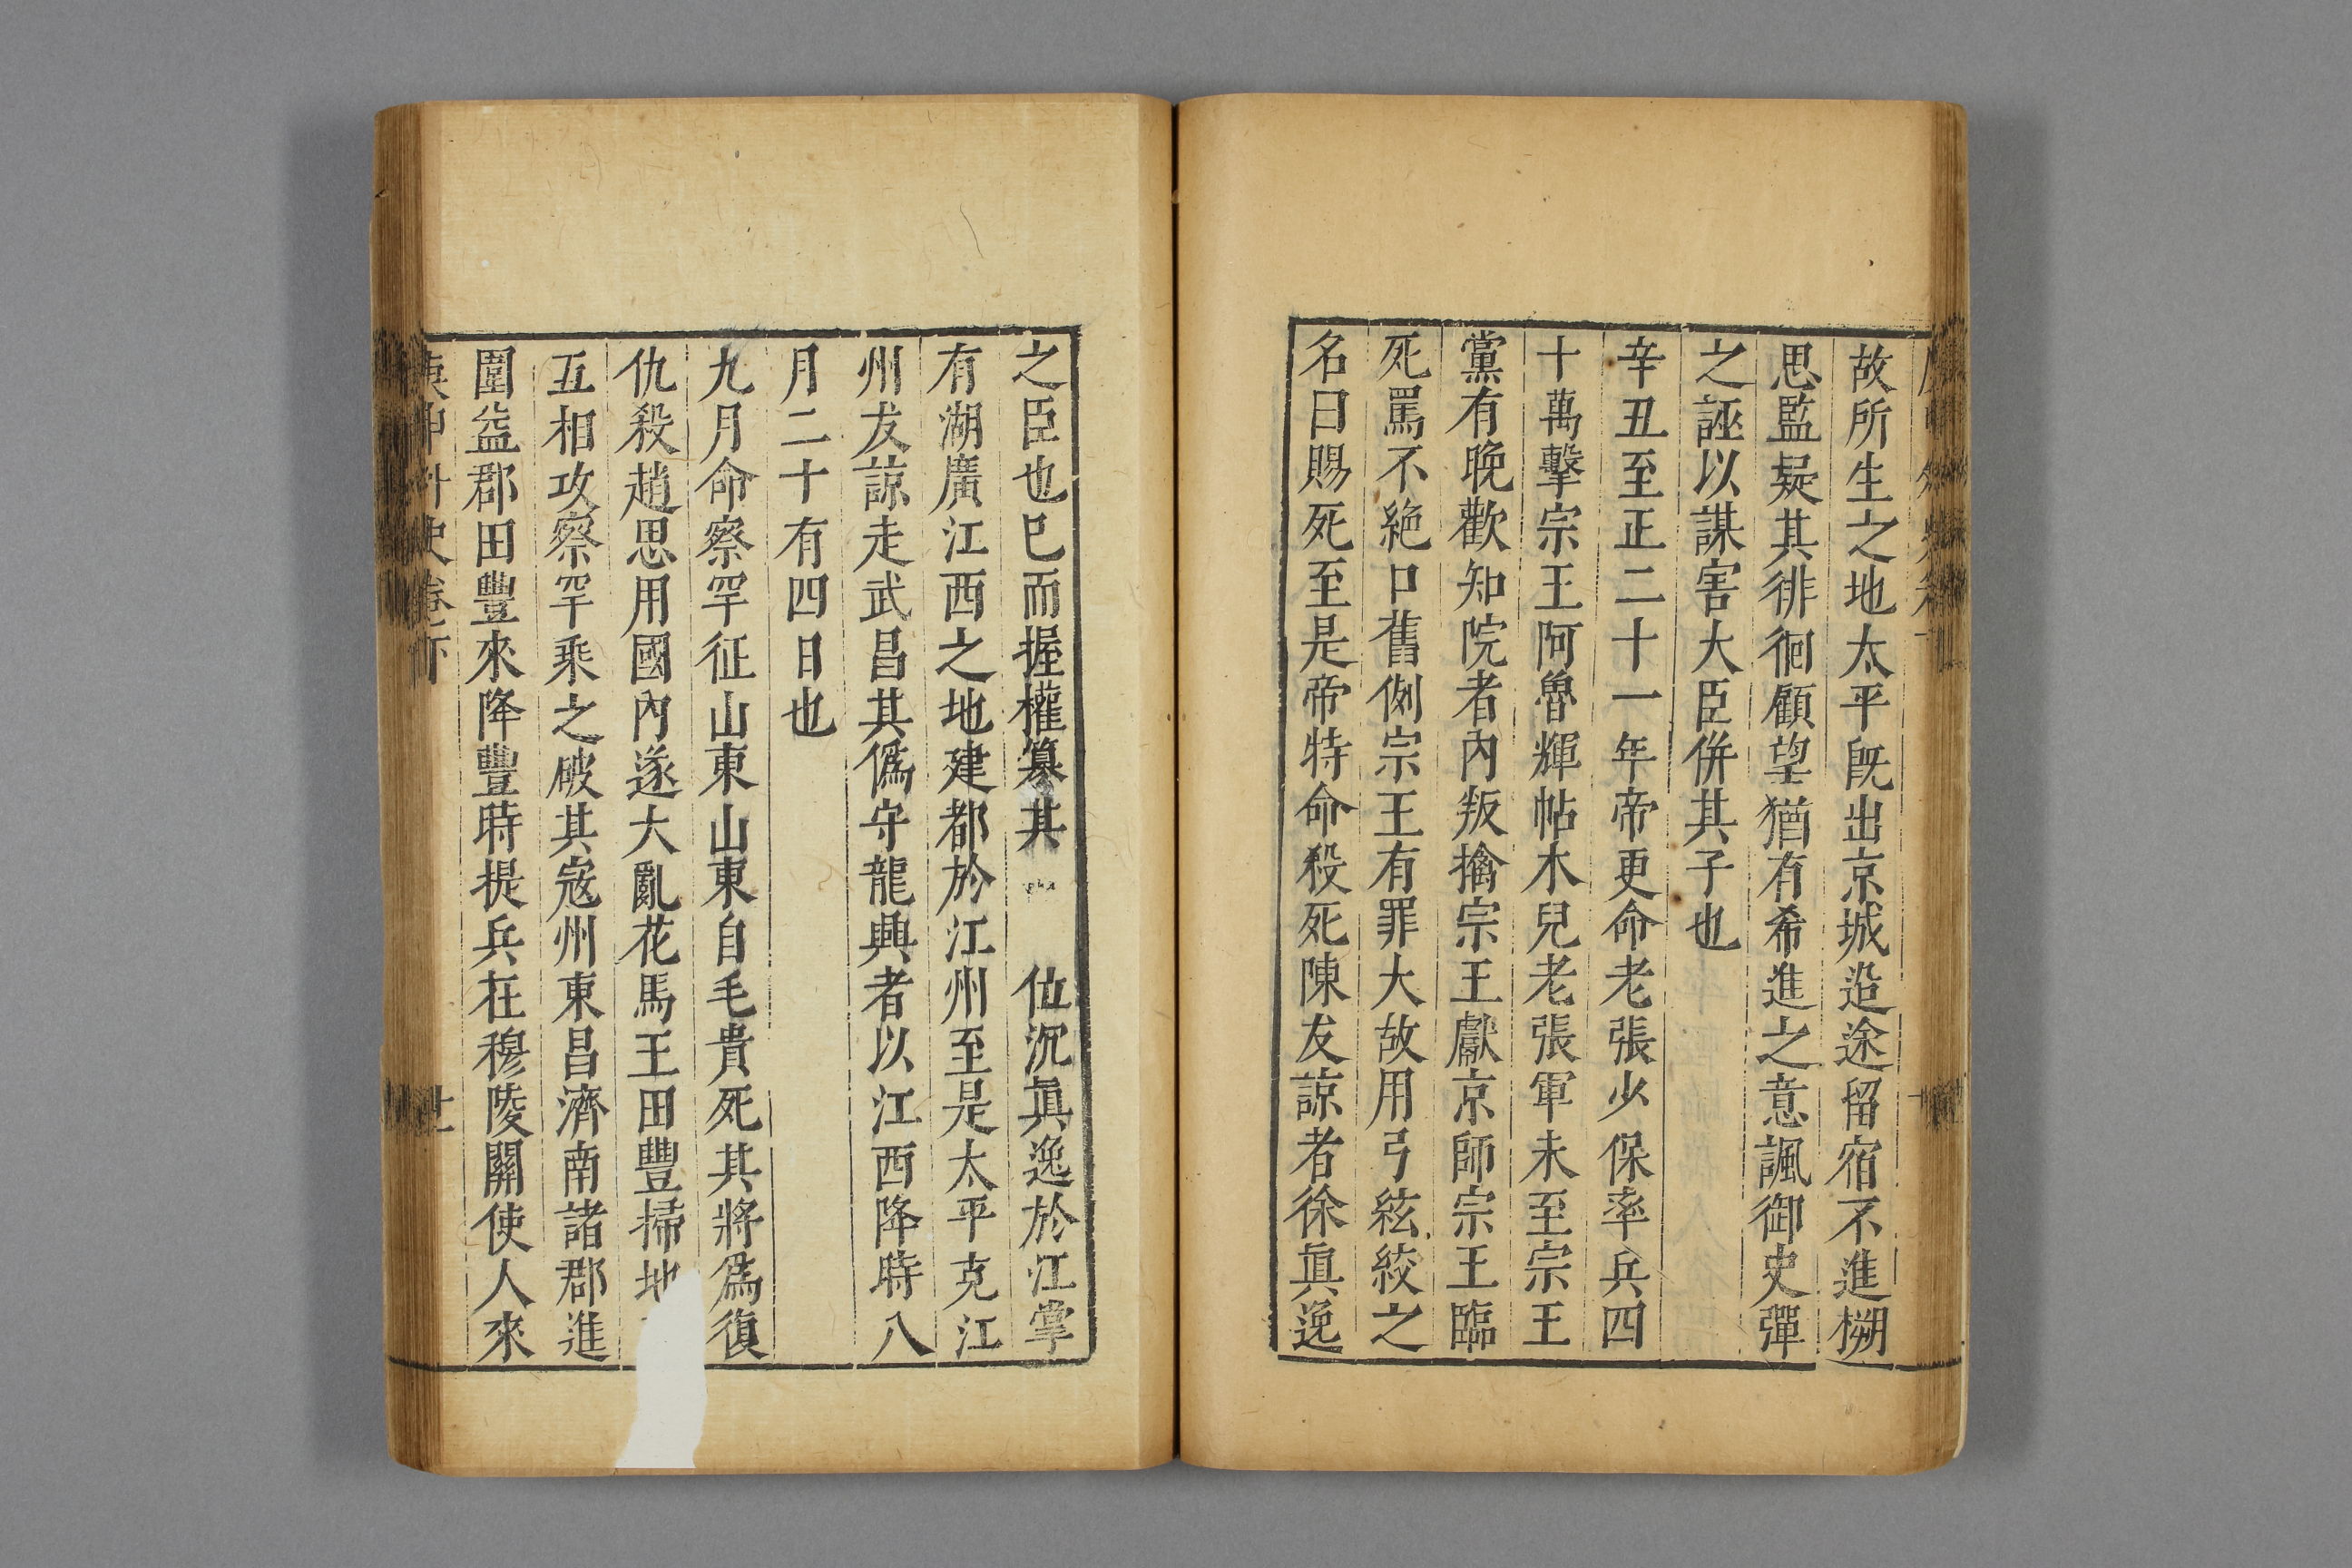 故所生之地太平旣出京城迨途留宿不進搠
思監疑其徘徊顧望猶有希進之意諷御史彈
之誣以謀害大臣併其子也
辛丑至正二十一年帝更命老張少保率兵四
十萬擊宗王阿魯輝帖木兒老張軍未至宗王
黨有晚歡知院者內叛擒宗王獻京師宗王臨
死罵不絶口舊例宗王有罪大故用弓絃絞之
名曰賜死至是帝特命殺死陳友諒者徐眞逸
之臣也已而握權篡其位沉眞逸於江掌
有湖廣江西之地建都於江州至是太平克江
州友諒走武昌其僞守龍興者以江西降時八
月二十有四日也
九月命察罕征山東山東自毛貴死其將爲復
仇殺趙思用國內遂大亂花馬王田豐掃地
五相攻察罕乘之破其寇州東昌濟南諸郡進
圍益郡田豐來降豐時提兵在穆陵關使人來
庚申外史卷下